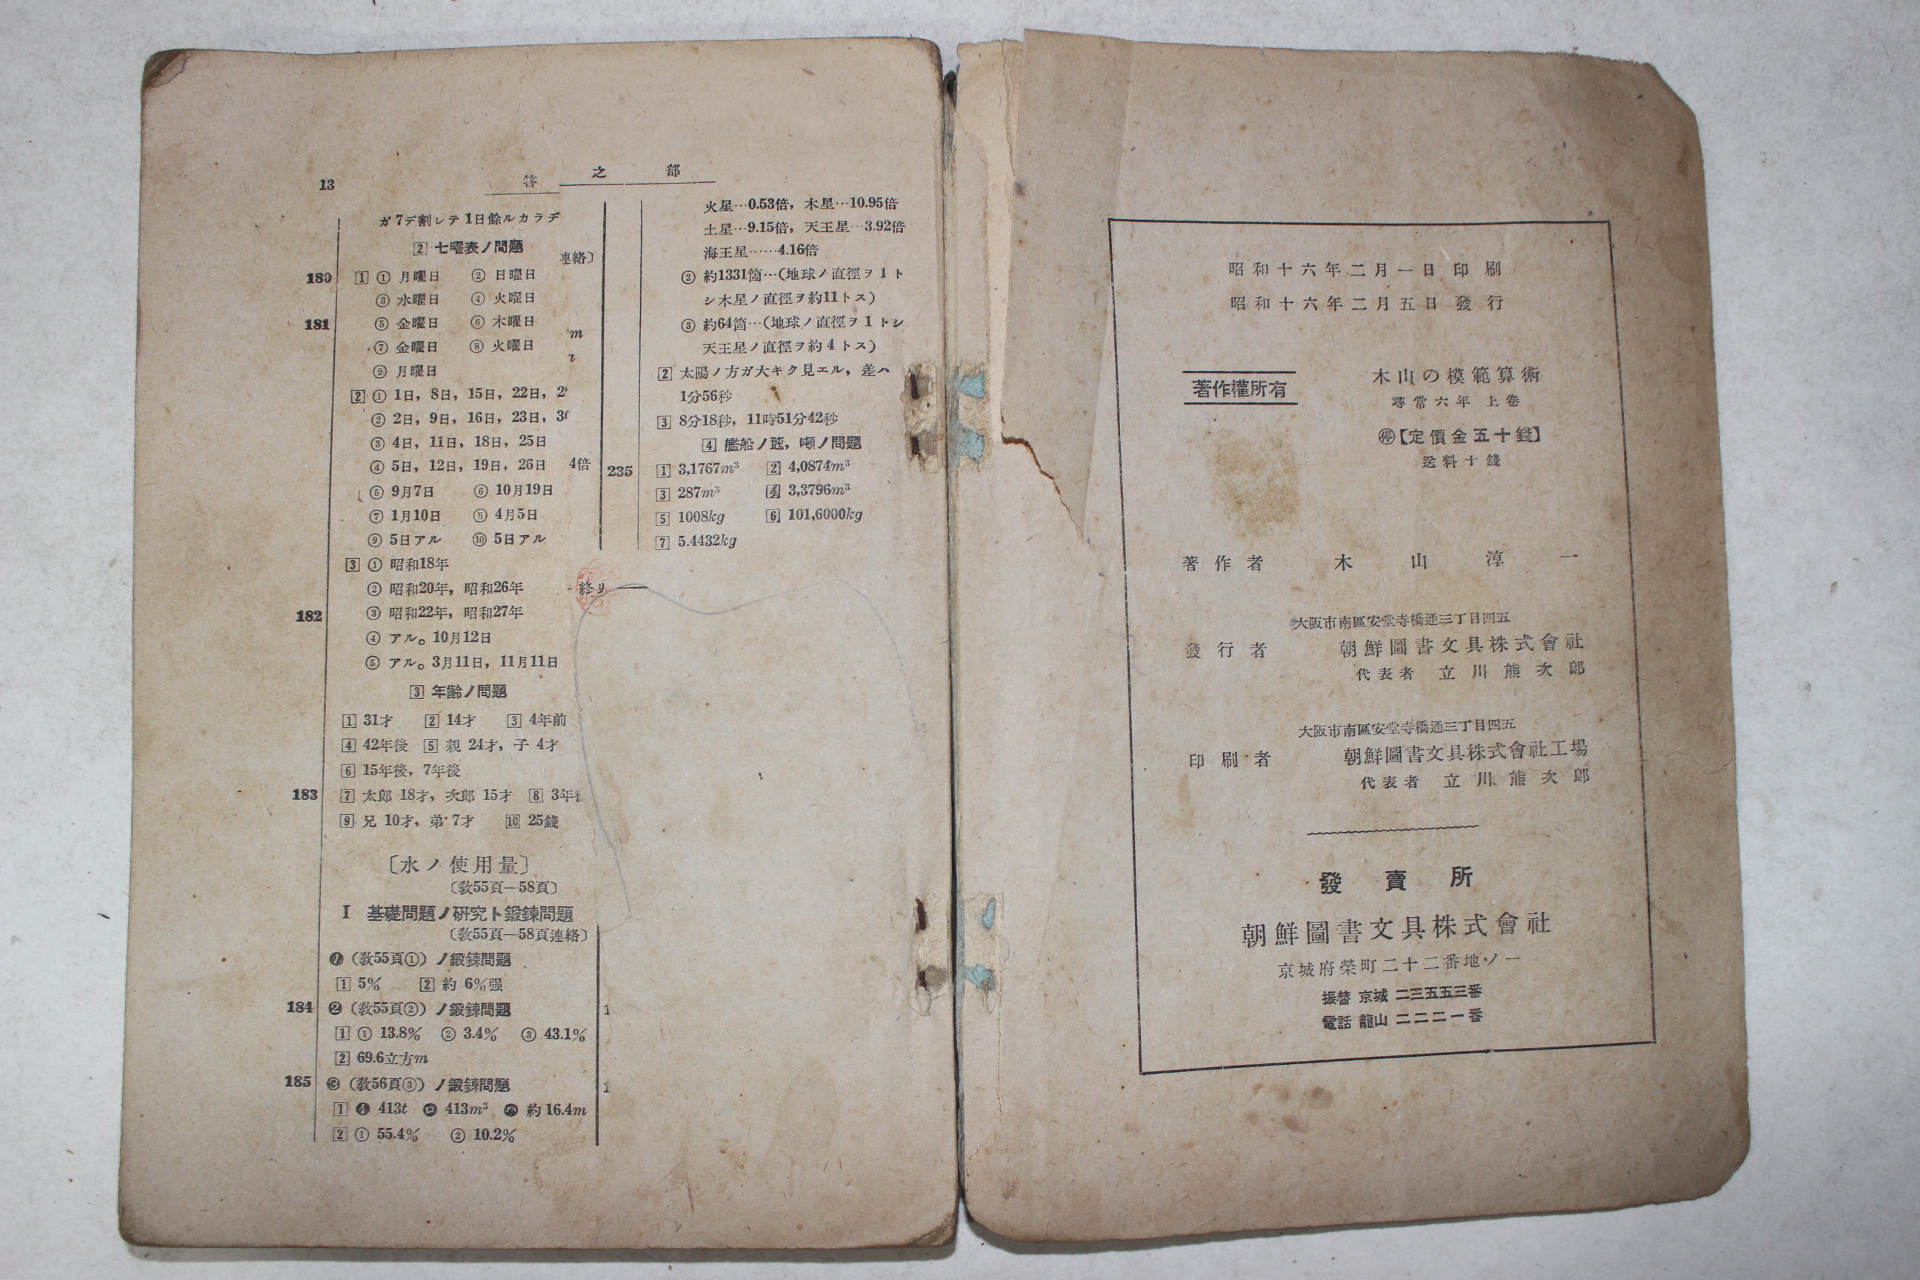 13
答 之 部
ガ7デ割レテ1日餘ルカラデ
2 七曜表ノ問題
連絡〕
180 1 ① 月曜日 ② 日曜日
③ 水曜日 ④ 火曜日
181 ⑤ 金曜日 ⑥ 木曜日
⑦ 金曜日 ⑧ 火曜日
⑨ 月曜日
m
2 ① 1日, 8日, 15日, 22日, 2
② 2日, 9日, 16日, 23日, 30
③ 4日, 11日, 18日, 25日
④ 5日, 12日, 19日, 26日
4倍
⑤ 9月7日 ⑥ 10月19日
⑦ 1月10日 ⑧ 4月5日
⑨ 5日アル ⑩ 5日アル
3 ① 昭和18年
② 昭和20年, 昭和26年
182 ③ 昭和22年, 昭和27年
④ アル。10月12日
⑤ アル。3月11日, 11月11日
3 年齢ノ問題
1 31才 2 14才 3 4年前
4 42年後 5 親 24才, 子 4才
6 15年後, 7年後
183 7 太郎 18才, 次郎 15才 8 3年後
9 兄 10才, 弟 7才 10 25錢
〔水ノ使用量〕
〔敎55頁—58頁〕
I 基礎問題ノ研究ト鍛鍊問題
〔敎55頁—58頁連絡〕
❶ (敎55頁①) ノ鍛鍊問題
1 5% 2 約 6%强
184 ❷ (敎55頁②) ノ鍛鍊問題
1 ① 13.8% ② 3.4% ③ 43.1%
2 69.6立方m
185 ❸ (敎56頁③) ノ鍛鍊問題
1 イ 413t ロ 413m³ ハ 約16.4m
2 ① 55.4% ② 10.2%
火星…0.53倍, 木星…10.95倍
土星…9.15倍, 天王星…3.92倍
海王星……4.16倍
② 約1331箇…(地球ノ直徑ヲ1ト
シ木星ノ直徑ヲ約11トス)
③ 約64箇…(地球ノ直徑ヲ1トシ
天王星ノ直徑ヲ約4トス)
2 太陽ノ方ガ大キク見エル, 差ハ
1分56秒
3 8分18秒, 11時51分42秒
4 艦船ノ速, 噸ノ問題
235 1 3,1767m³ 2 4,0874m³
3 287m³ 4 3,3796m³
5 1008kg 6 101,6000kg
7 5.4432kg
終リ
昭和十六年二月一日印刷
昭和十六年二月五日發行
著作權所有
木山の模範算術
尋常六年 上卷
停【定價金五十錢】
送料十錢
著作者 木山淳一
大阪市南區安堂寺橋通三丁目四五
發行者 朝鮮圖書文具株式會社
代表者 立川熊次郎
大阪市南區安堂寺橋通三丁目四五
印刷者 朝鮮圖書文具株式會社工場
代表者 立川熊次郎
發賣所
朝鮮圖書文具株式會社
京城府榮町二十二番地ノ一
振替 京城 二三五五三番
電話 龍山 二二二一番